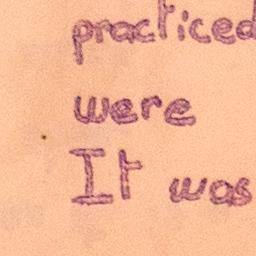 practiced
were
It was